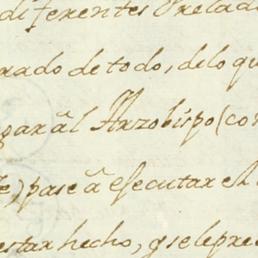 diferentes Prelad
rado de todo, delo qu
gar âl Arzobispo (co
) pase â esecutar el
estar hecho, y se le pre